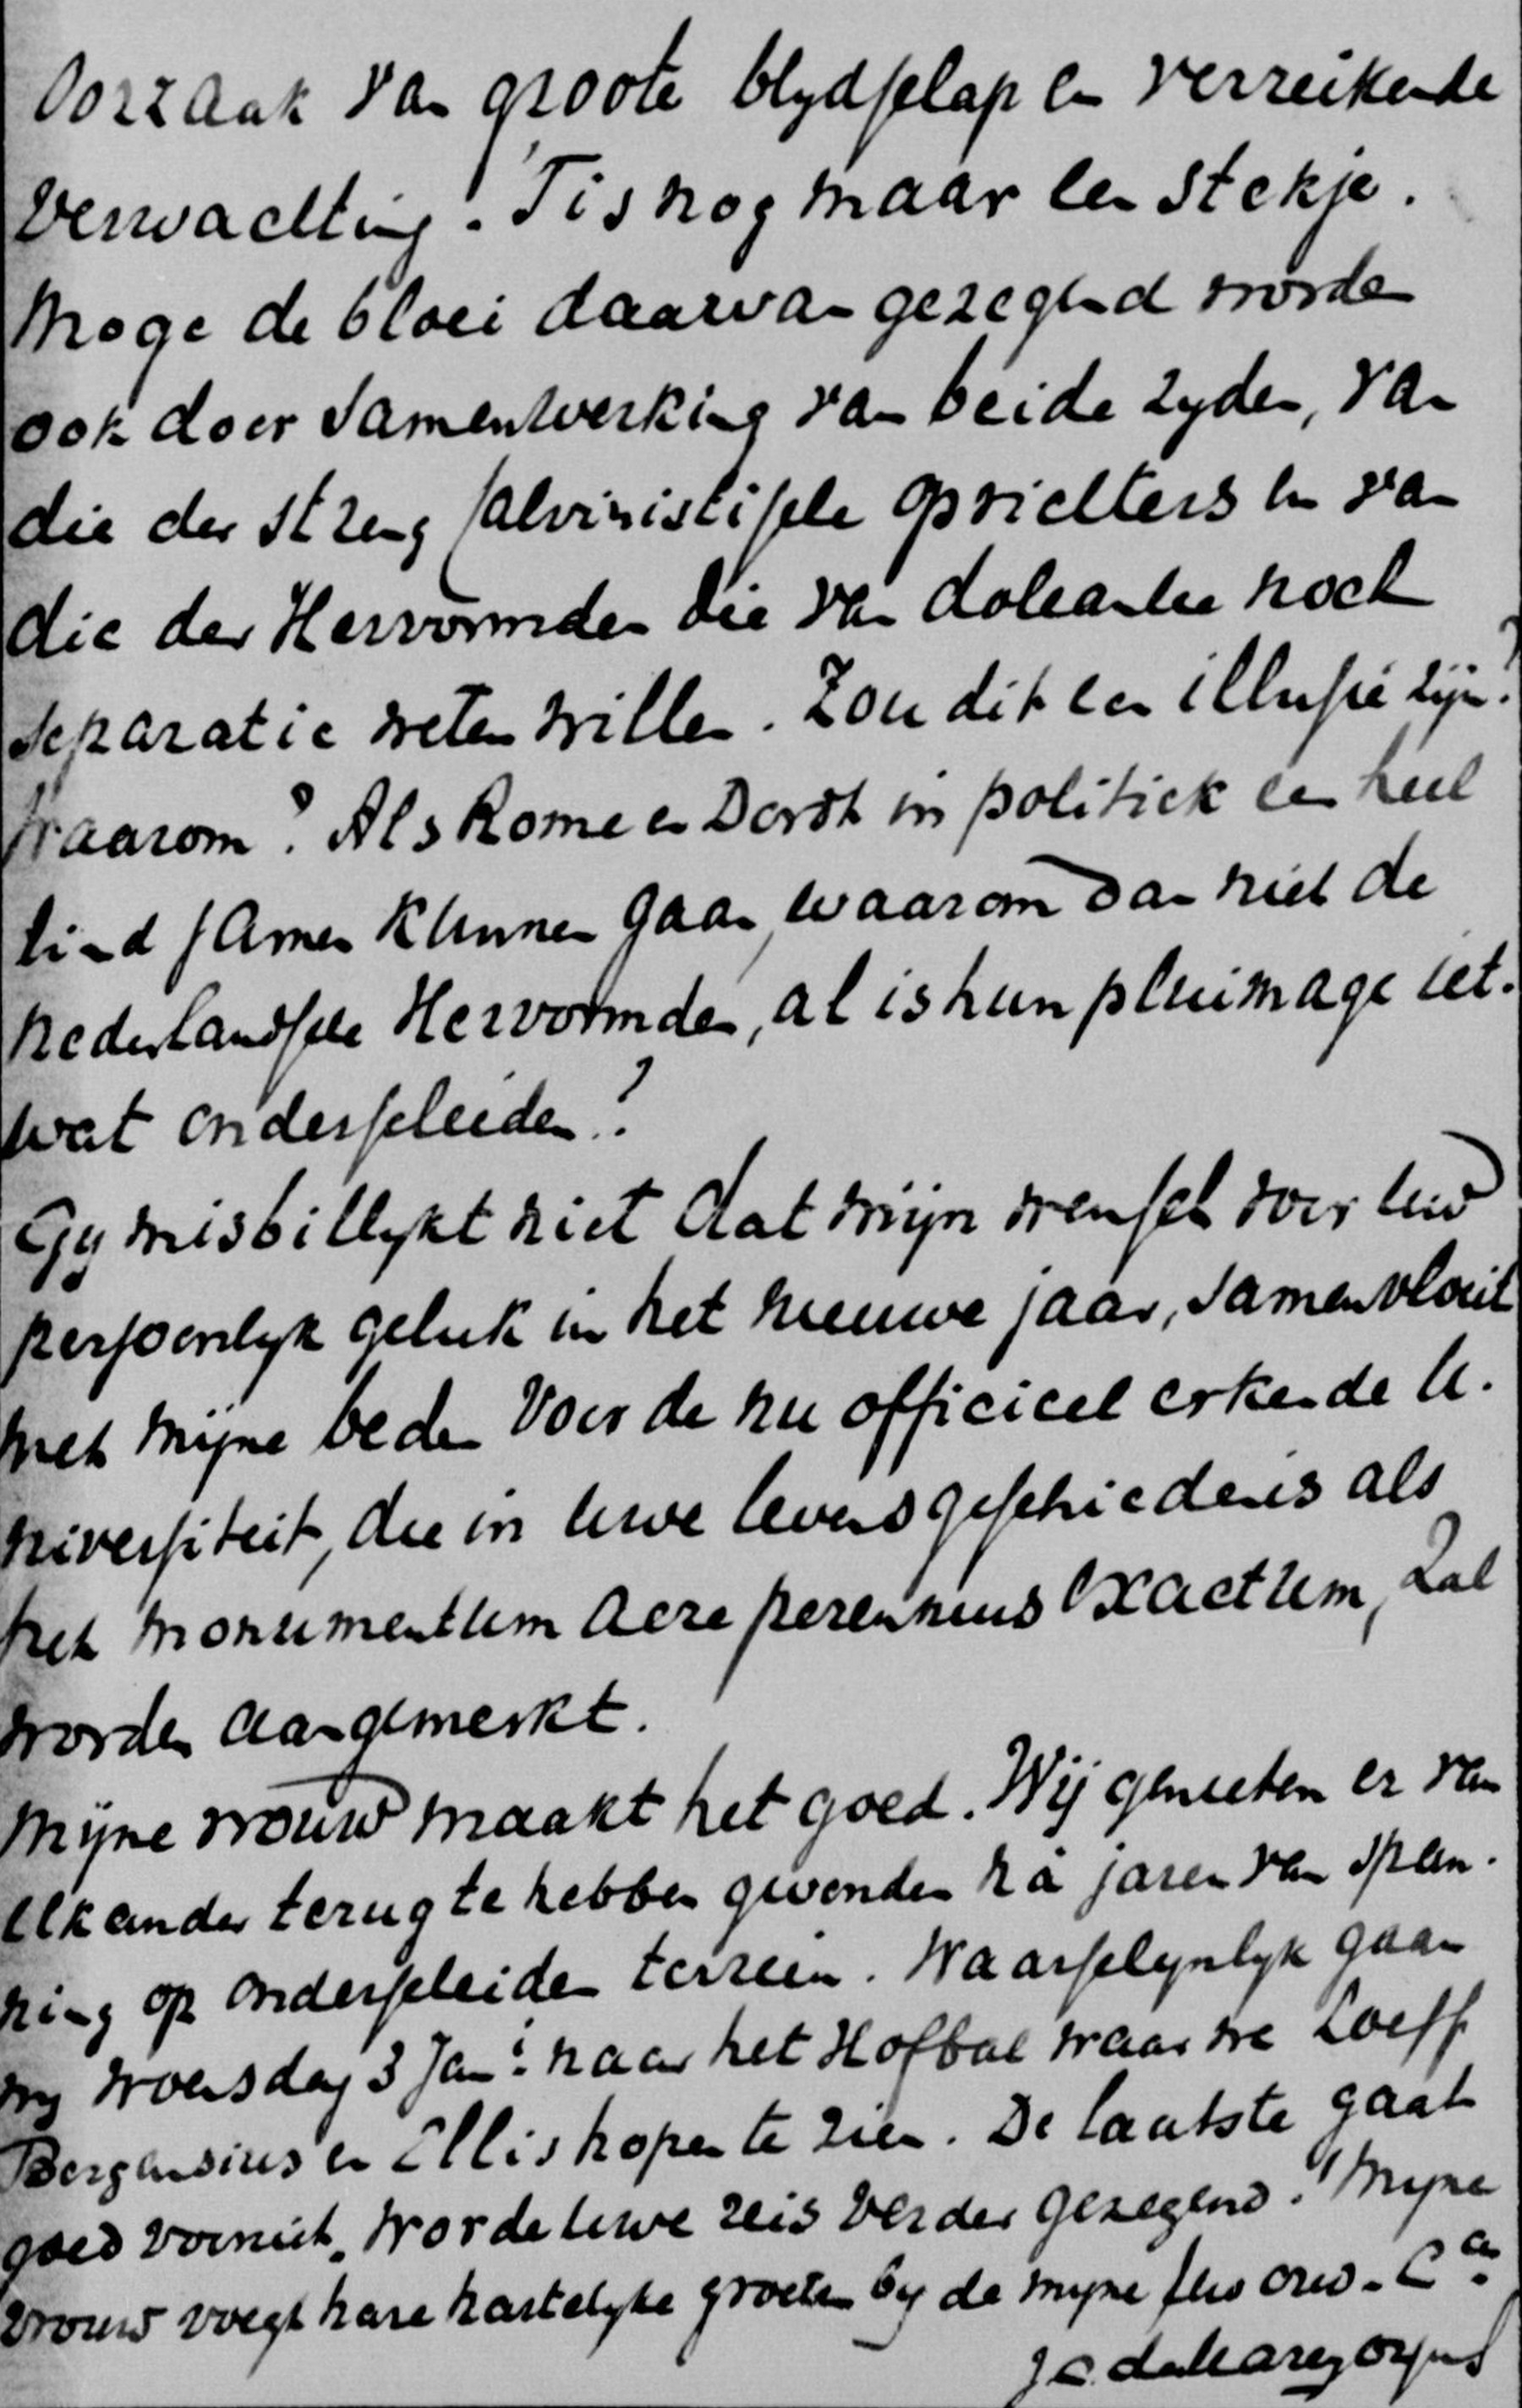 Oorzaak van groote blydschap en verreikende
verwachting. 'T is nog maar een stekje.
Moge de bloei daarvan gezegend worden
ook door samenwerking van beide zyden, van
die der streng Calvinistische oprichters en van
die der Hervormden die van doleantie noch
separatie weten willen. Zou dit een illusie zijn?
Waarom? Als Rome en Dordt in politiek een heel
eind samen kunnen gaan, waarom dan niet de
Nederlandsche Hervormden, al is hun pluimage iet-
wat onderscheiden?
Gy misbillykt niet dat mijn wensch voor uw
persoonlyk geluk in het nieuwe jaar, samenvloeit
met mijne beden voor de nu officieel erkende U-
niversiteit, die in uwe levensgeschiedenis als
het monumentum aere perennius exactum, zal
worden aangemerkt.
Mijne vrouw maakt het goed. Wij genieten er van
elkander terug te hebben gevonden na jaren van span-
ning op onderscheiden terrein. Waarschynlyk gaan
wy woensdag 3 Jan: naar het Hofbal waar we Loeff
Bergansius en Ellis hopen te zien. De laatste gaat
goed vooruit. Worde uwe reis verder gezegend. Myne
vrouw voegt hare hartelyke groeten by de myne
J C